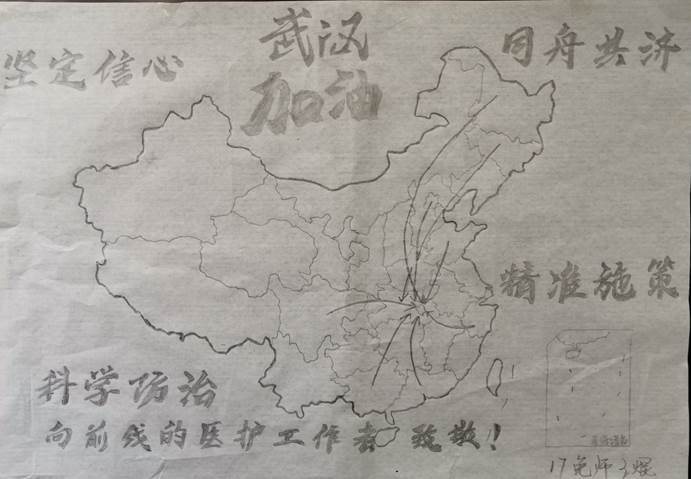 武汉
加油
坚定信心
同舟共济
精准施策
科学防治
向前线的医护工作者致敬!
17免师